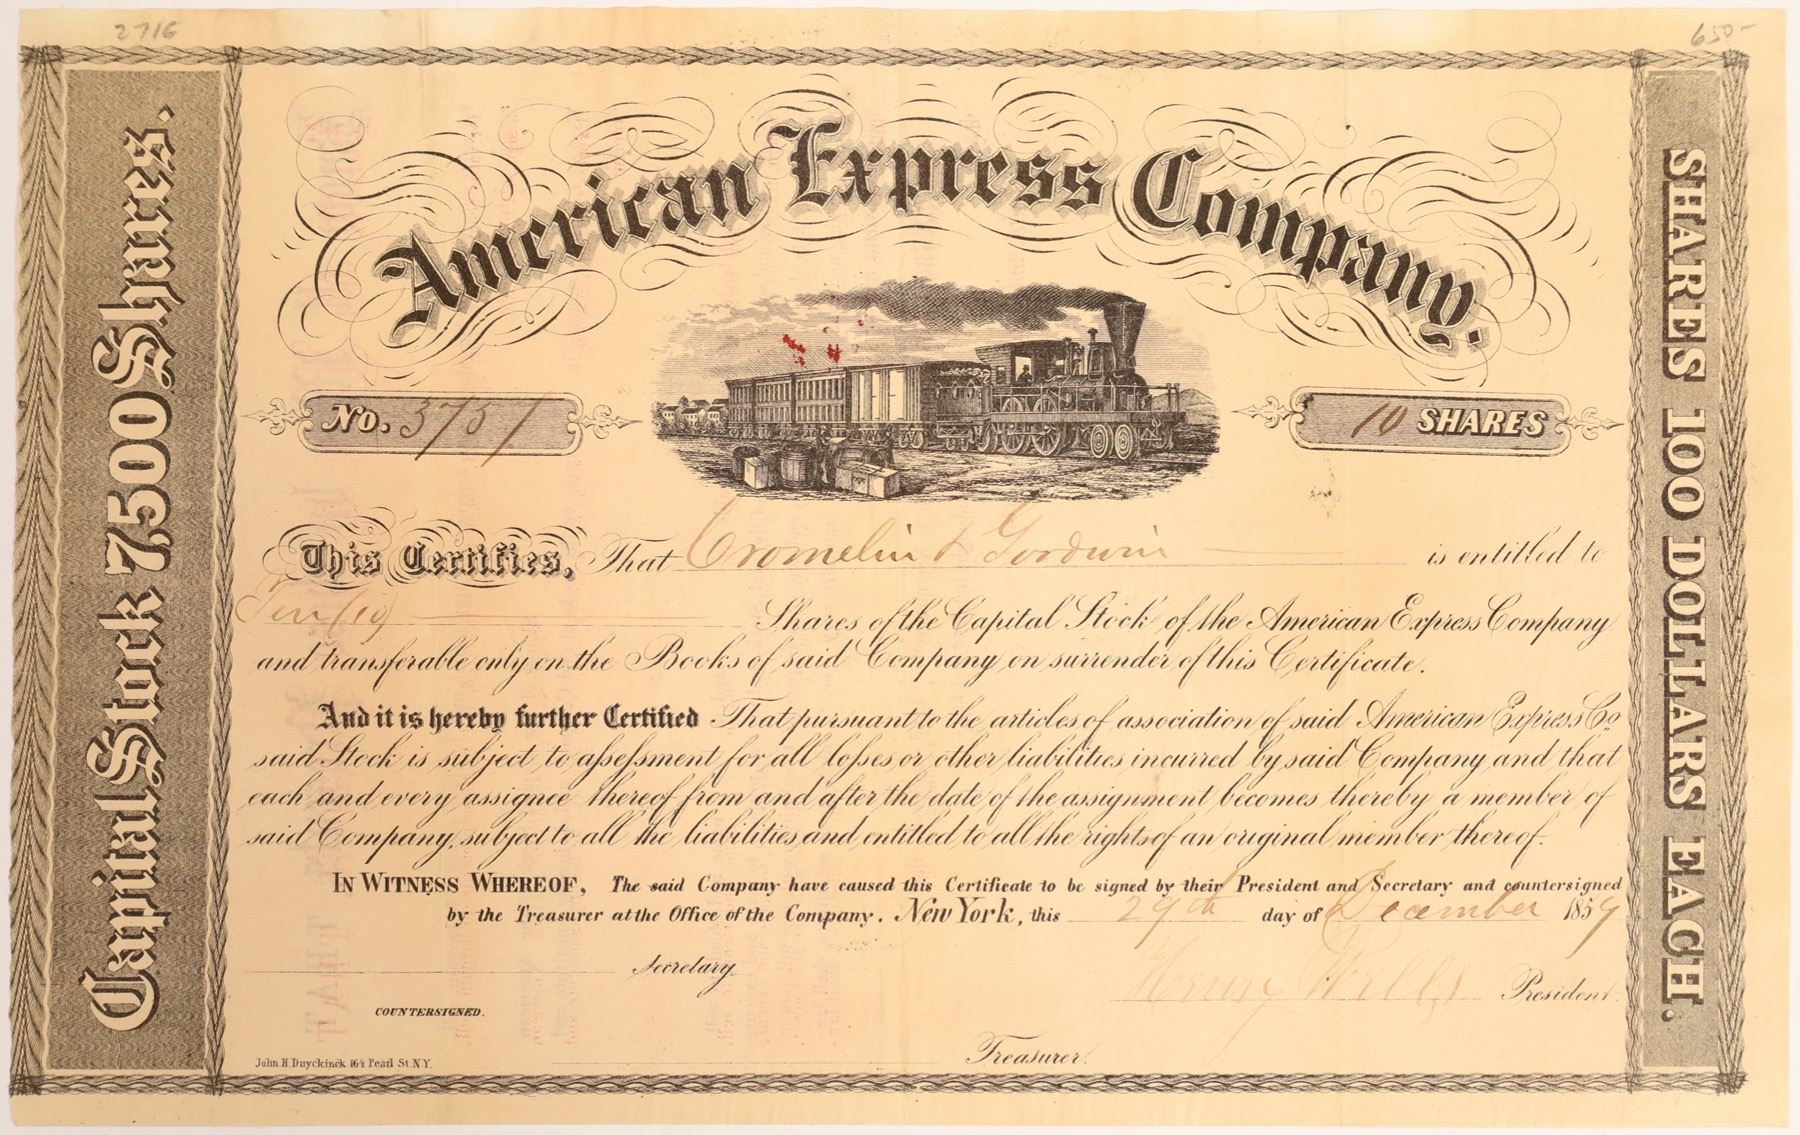 2716
650-
Capital Stock 7,500 Shares.
American Express Company.
No. 3757
10 SHARES
This Certifies, That Cromelin & Gordwin is entitled to
Ten (10) Shares of the Capital Stock of the American Express Company
and transferable only on the Books of said Company on surrender of this Certificate.
And it is hereby further Certified That pursuant to the articles of association of said American Express Co.
said Stock is subject to assessment for all losses or other liabilities incurred by said Company and that
each and every assignee thereof from and after the date of the assignment becomes thereby a member of
said Company, subject to all the liabilities and entitled to all the rights of an original member thereof.
IN WITNESS WHEREOF, The said Company have caused this Certificate to be signed by their President and Secretary and countersigned
by the Treasurer at the Office of the Company. New York, this 29th day of December 1859
Secretary
Henry Wells President
COUNTERSIGNED.
Treasurer.
John H. Duyckinck 164 Pearl St. N.Y.
SHARES 100 DOLLARS EACH.